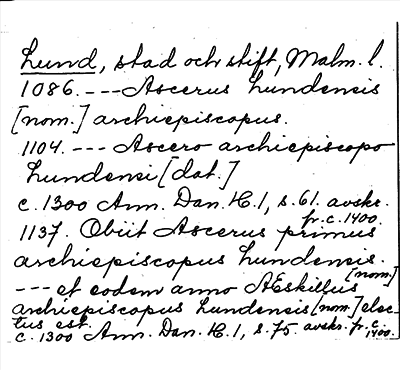 Lund, stad och stift, Malm. l.
1086. --- Ascerus Lundensis
[nom.] archiepiscopus.
1104. --- Ascero archiepiscopo
Lundensi [dat.]
c. 1300 Ann. Dan. H. 1, s. 61. avskr.
fr. c. 1400.
1137. Obiit Ascerus primus
archiepiscopus Lundensis.
[nom.]
--- et eodem anno Æskillus
archiepiscopus Lundensis [nom.] elec-
tus est.
c. 1300 Ann. Dan. H. 1, s. 75. avskr. fr. c.
1400.